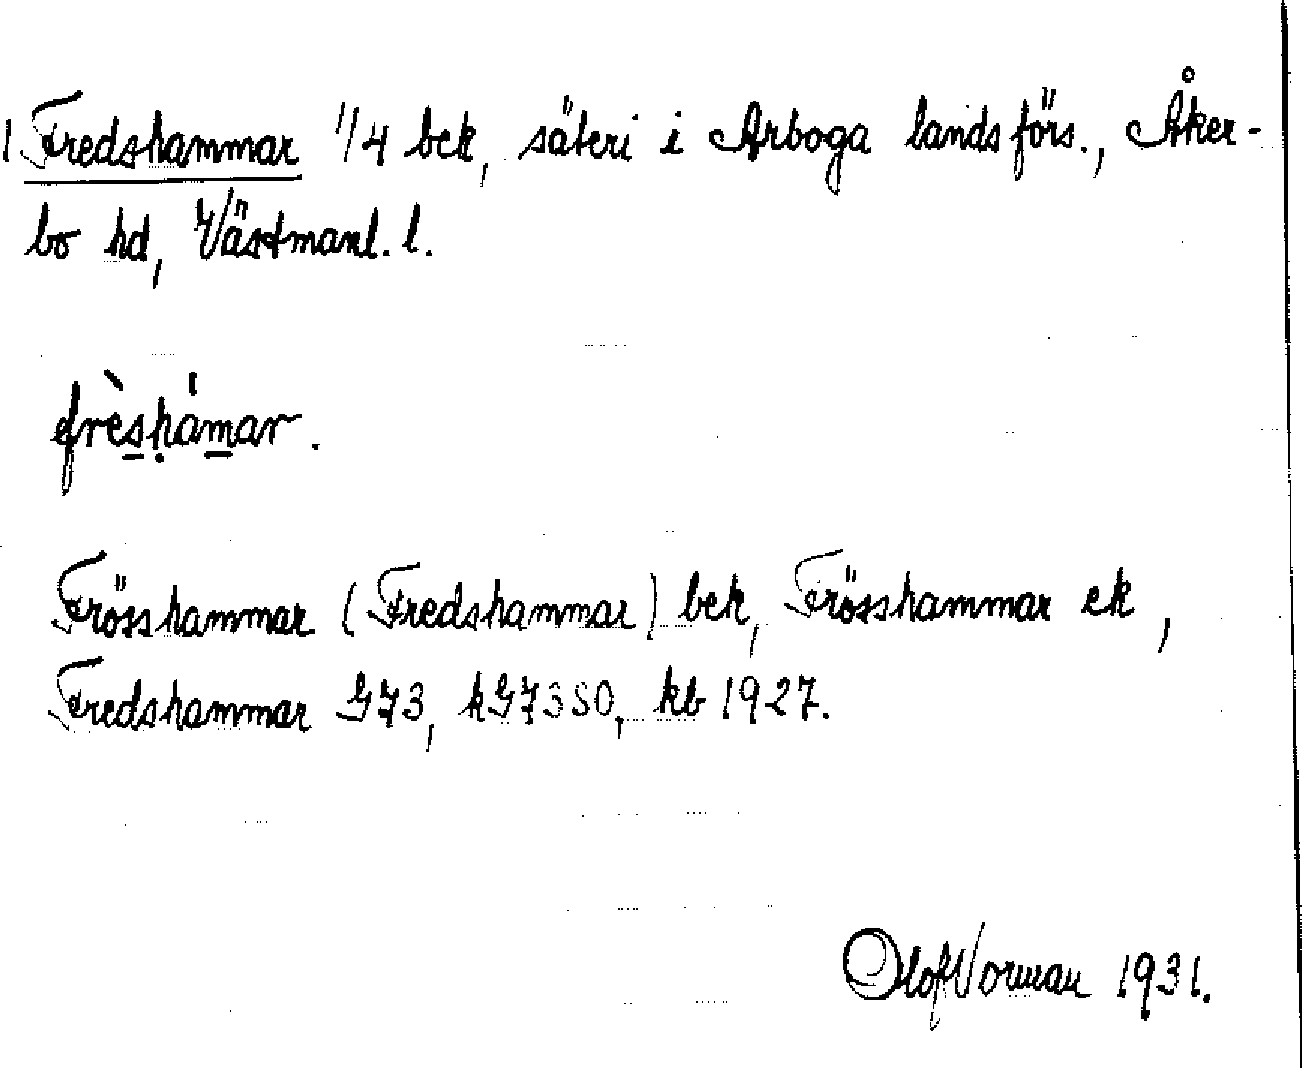 1 Fredshammar 1/4 bek, säteri i Arboga landsförs., Åker-
bo hd, Västmanl. l.
frèshámar.
Frösshammar (Fredshammar) bek, Frösshammar ek,
Fredshammar G73, kG73SO, kb 1927.
Olof Vorman 1931.